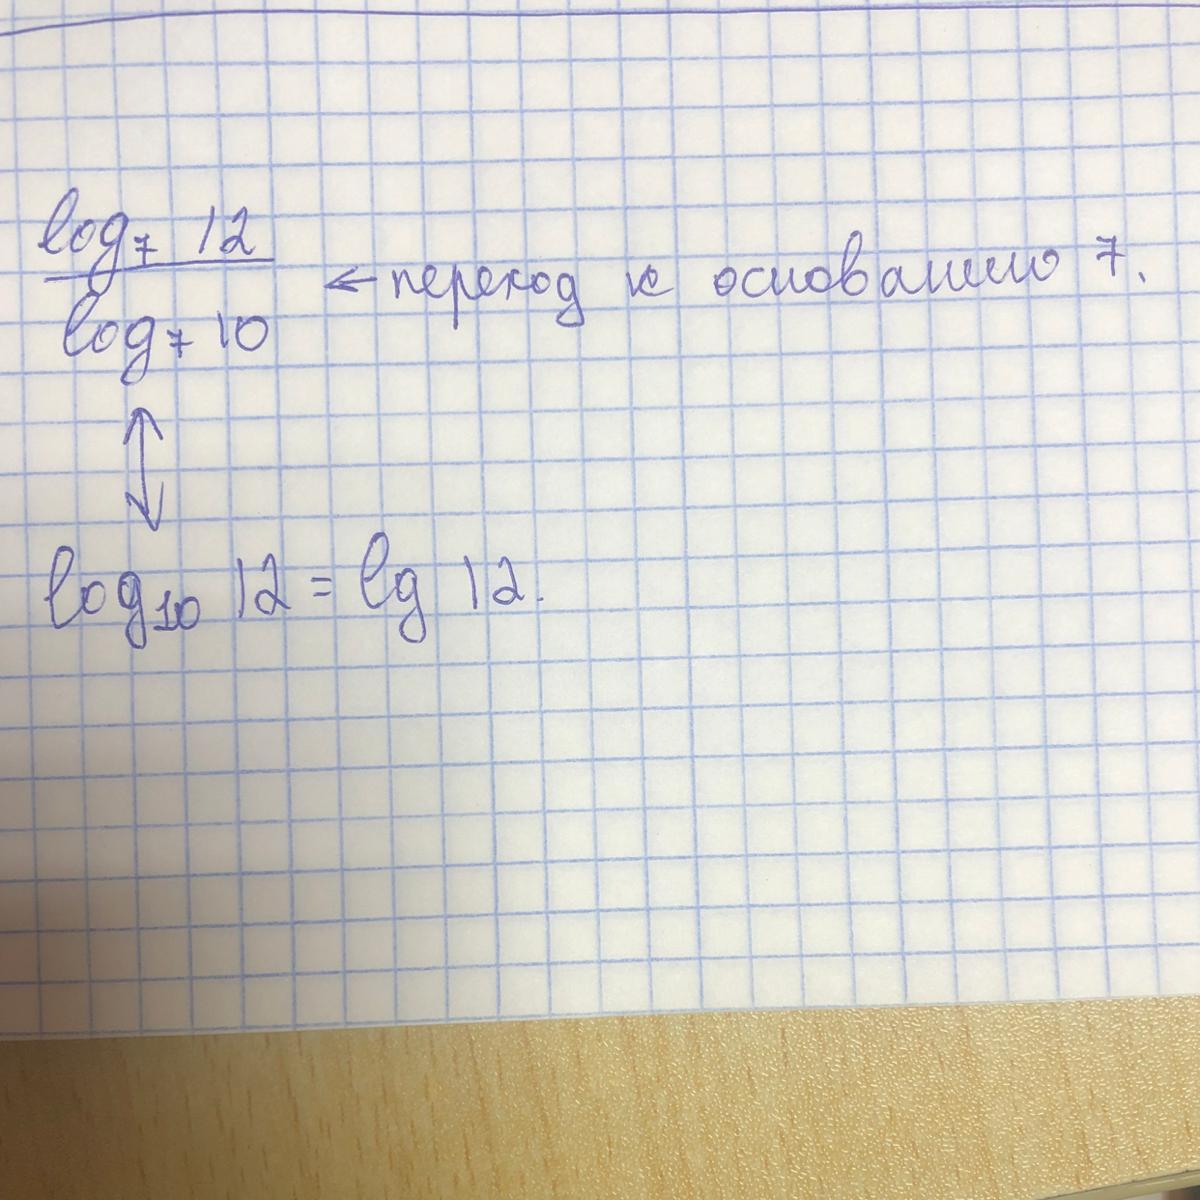 log₇ 12
log₇ 10
← переход к основанию 7.
↕
log₁₀ 12 = lg 12.